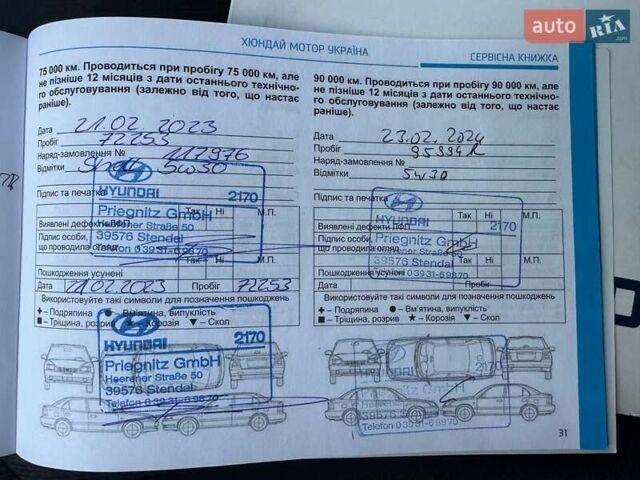 auto RIA.com
ХЮНДАЙ МОТОР УКРАЇНА
СЕРВІСНА КНИЖКА
75 000 км. Проводиться при пробігу 75 000 км, але
не пізніше 12 місяців з дати останнього технічно-
го обслуговування (залежно від того, що настає
раніше).
Дата 21.02.2023
Пробіг 72253
Наряд-замовлення № 117976
Відмітки Shell 5w30
Підпис та печатка
HYUNDAI 2170
Priegnitz GmbH
Heerener Straße 50
39576 Stendal
Telefon 03931-69870
Так Ні М.П.
Виявлені дефекти ЛФП
Підпис особи,
що проводила огляд
Так Ні М.П.
Пошкодження усунені
Дата 21.02.2023 Пробіг 72253
Використовуйте такі символи для позначення пошкоджень
+ – Подряпина ● – Вм'ятина, випуклість
■ – Тріщина, розрив ★ – Корозія ▼ – Скол
HYUNDAI 2170
Priegnitz GmbH
Heerener Straße 50
39576 Stendal
Telefon 03931-69870
90 000 км. Проводиться при пробігу 90 000 км, але
не пізніше 12 місяців з дати останнього технічно-
го обслуговування (залежно від того, що настає
раніше).
Дата 23.02.2024
Пробіг
Наряд-замовлення №
Відмітки 5w30
Підпис та печатка
2170
Priegnitz GmbH
39576 Stendal
Telefon 03931-69870
Так Ні М.П.
Виявлені дефекти ЛФП
Підпис особи,
що проводила огляд
Так Ні М.П.
Пошкодження усунені
Дата Пробіг
Використовуйте такі символи для позначення пошкоджень
+ – Подряпина ● – Вм'ятина, випуклість
■ – Тріщина, розрив ★ – Корозія ▼ – Скол
2170
Priegnitz GmbH
39576 Stendal
Telefon 03931-69870
31